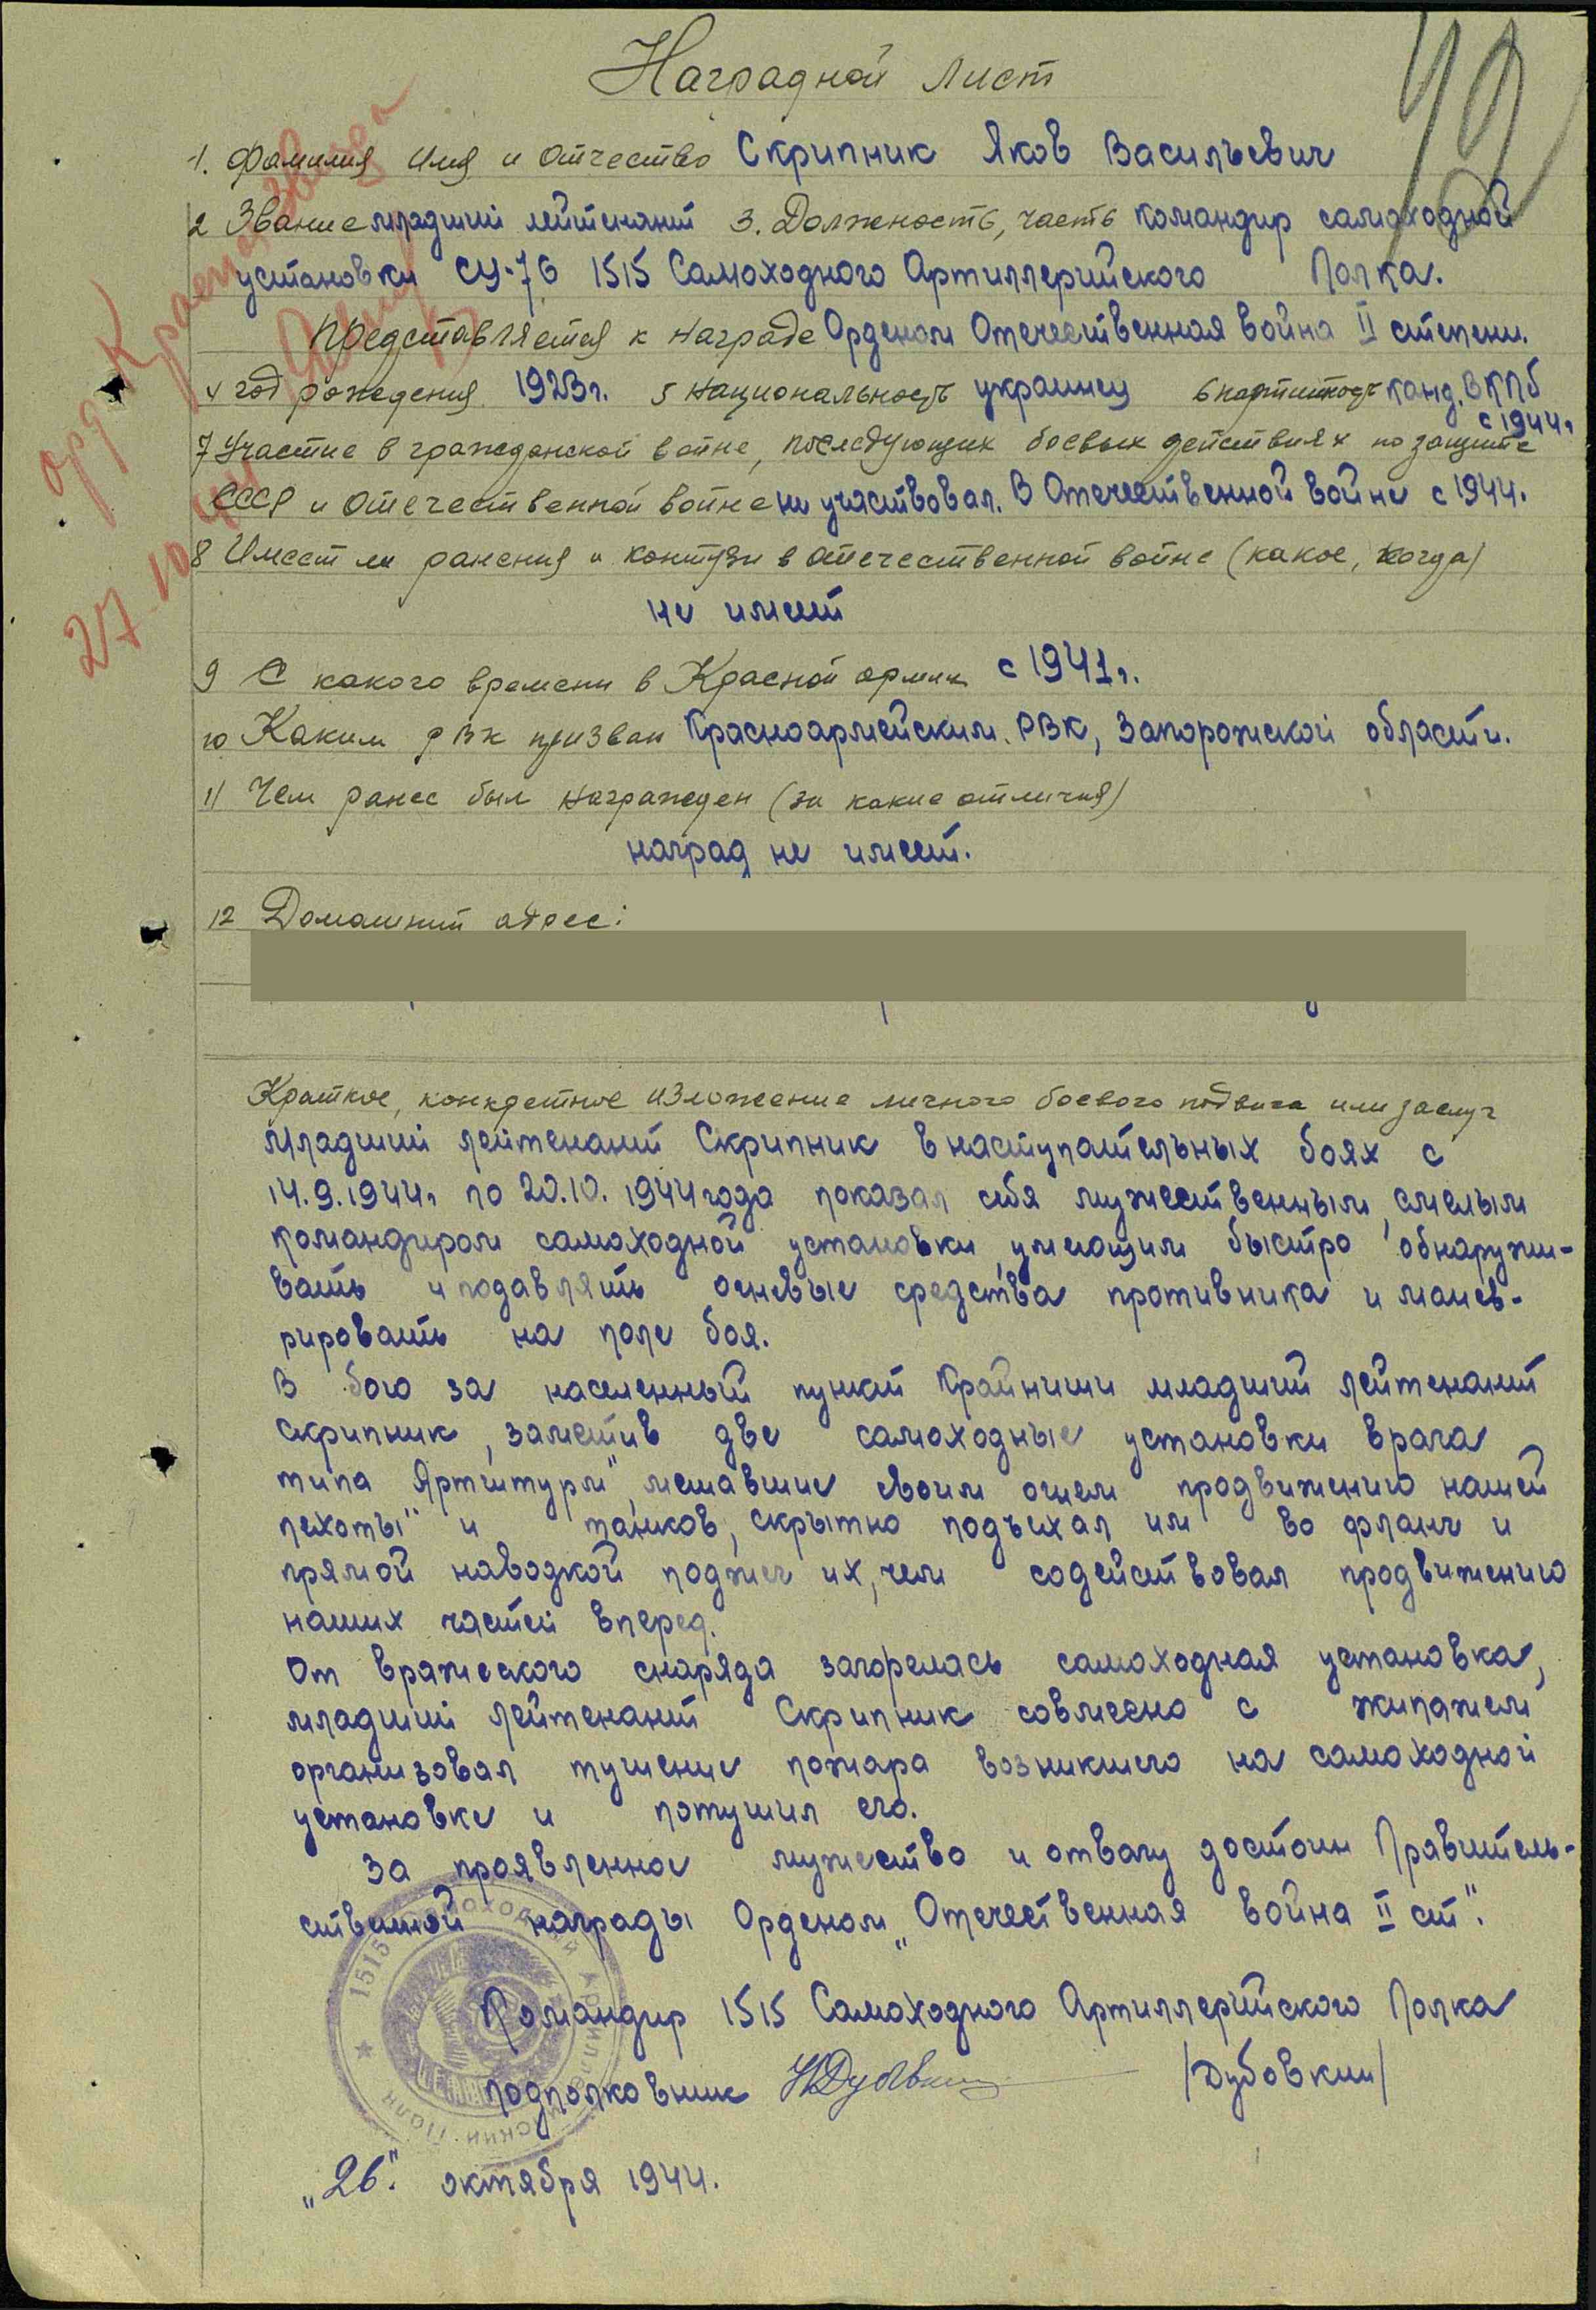 Наградной лист
49
1. Фамилия Имя и Отчество Скрипник Яков Васильевич
2 Звание младший лейтенант 3. Должность, часть командир самоходной
установки СУ-76 1515 Самоходного Артиллерийского Полка.
Представляется к награде Орденом Отечественная война II степени.
4 год рождения 1923г. 5 национальность украинец 6 партийность канд. ВКПб
с 1944г
7 Участие в гражданской войне, последующих боевых действиях по защите
СССР и отечественной войне не участвовал. В Отечественной войне с 1944.
8 Имеет ли ранения и контузи в отечественной войне (какое, когда)
не имеет
9 С какого времени в Красной армии с 1941г.
10 Каким рвк призван Красноармейским РВК, Запорожской области.
11 Чем ранее был награжден (за какие отличия)
наград не имеет.
12 Домашний адрес:
орд Красная Звезда
27.10.44
Краткое, конкретное изложение личного боевого подвига или заслуг
Младший лейтенант Скрипник в наступательных боях с
14.9.1944г по 20.10.1944 года показал себя мужественным, смелым
командиром самоходной установки, умеющим быстро обнаружи-
вать и подавлять огневые средства противника и манев-
рировать на поле боя.
В бою за населенный пункт Крайниши младший лейтенант
Скрипник, заметив две самоходные установки врага
типа „Артштурм", мешавшие своим огнем продвижению нашей
пехоты и танков, скрытно подъехал им во фланг и
прямой наводкой поджег их, чем содействовал продвижению
наших частей вперед.
От вражеского снаряда загорелась самоходная установка,
младший лейтенант Скрипник совмесно с экипажем
организовал тушение пожара возникшего на самоходной
установке и потушил его.
За проявленное мужество и отвагу достоин Правитель-
ственной награды Орденом „Отечественная война II ст".
Командир 1515 Самоходного Артиллерийского Полка
подполковник /Дубовкин/
„26". октября 1944.
1515 Самоходный Артиллерийский Полк